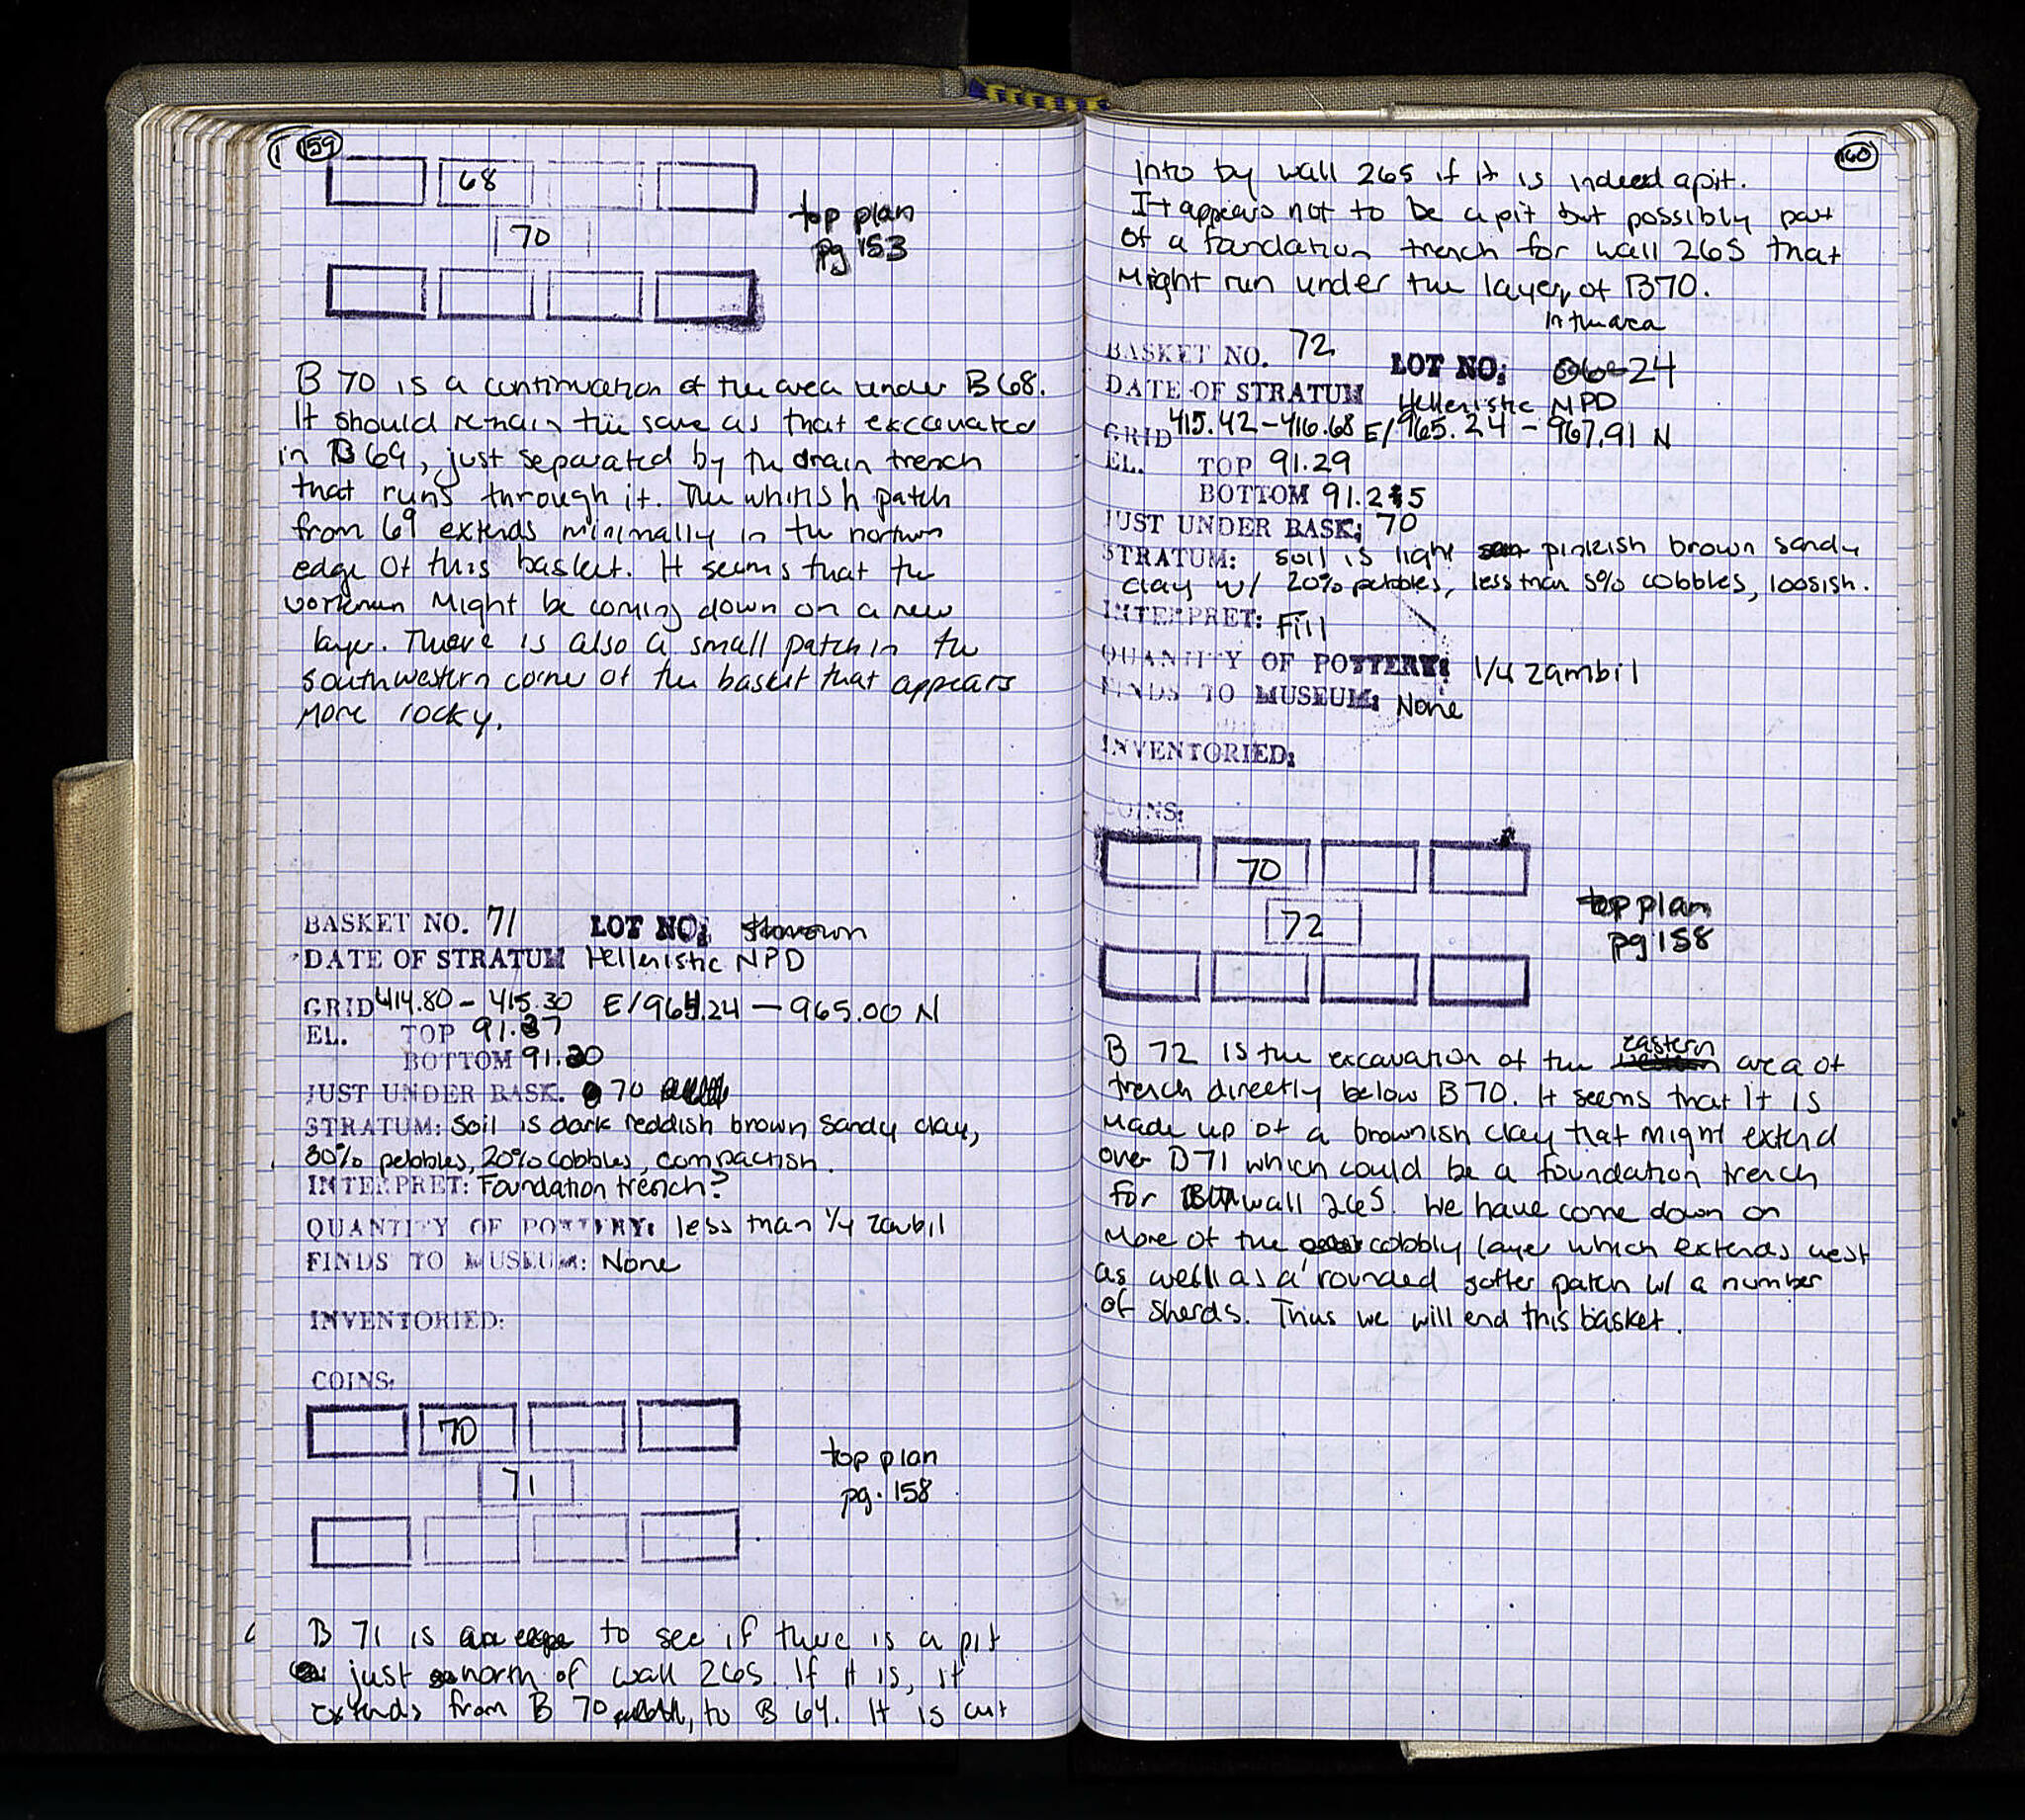 159
68
70
top plan
pg 153
B 70 is a continuation of the area under B 68.
It should remain the same as that exccavated
in B 69, just separated by the drain trench
that runs through it. The whitish patch
from 69 extends minimally in the northern
edge of this basket. It seems that the
workmen might be coming down on a new
layer. There is also a small patch in the
southwestern corner of the basket that appears
more rocky.
BASKET NO. 71 LOT NO:
DATE OF STRATUM Hellenistic NPD
GRID 414.80 - 415.30 E/964.24 - 965.00 N
EL. TOP 91.37
BOTTOM 91.20
JUST UNDER BASK. 70
STRATUM: Soil is dark reddish brown sandy clay,
30% pebbles, 20% cobbles, compactish.
INTERPRET: Foundation trench?
QUANTITY OF POTTERY: less than 1/4 zambil
FINDS TO MUSEUM: None
INVENTORIED:
COINS:
70
71
top plan
pg. 158
B 71 is to see if there is a pit
just north of wall 265. If it is, it
extends from B 70, to B 64. It is cut
160
into by wall 265 if it is indeed a pit.
It appears not to be a pit but possibly part
of a fandation trench for wall 265 that
might run under the layer of B70.
in the area
BASKET NO. 72 LOT NO: 24
DATE OF STRATUM Hellenistic NPD
GRID 415.42-416.68 E/965.24 - 967.91 N
EL. TOP 91.29
BOTTOM 91.25
JUST UNDER BASK: 70
STRATUM: soil is light pinkish brown sandy
clay w/ 20% pebbles, less than 5% cobbles, loosish.
INTERPRET: Fill
QUANTITY OF POTTERY: 1/4 zambil
FINDS TO MUSEUM: None
INVENTORIED:
COINS:
70
72
top plan
pg 158
B 72 is the excavation of the eastern area of
trench directly below B 70. It seems that it is
made up of a brownish clay that might extend
over B71 which could be a foundation trench
for wall 265. We have come down on
more of the cobbly layer which extends west
as well as a rounded softer patch w/ a number
of sherds. Thus we will end this basket.